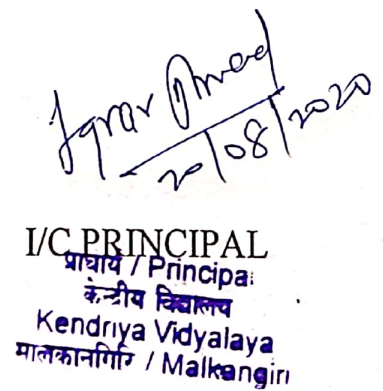 Iqrar Ahmad
20/08/2020
I/C PRINCIPAL
प्राचार्य / Principal
केन्द्रीय विद्यालय
Kendriya Vidyalaya
मालकानगिरि / Malkangiri